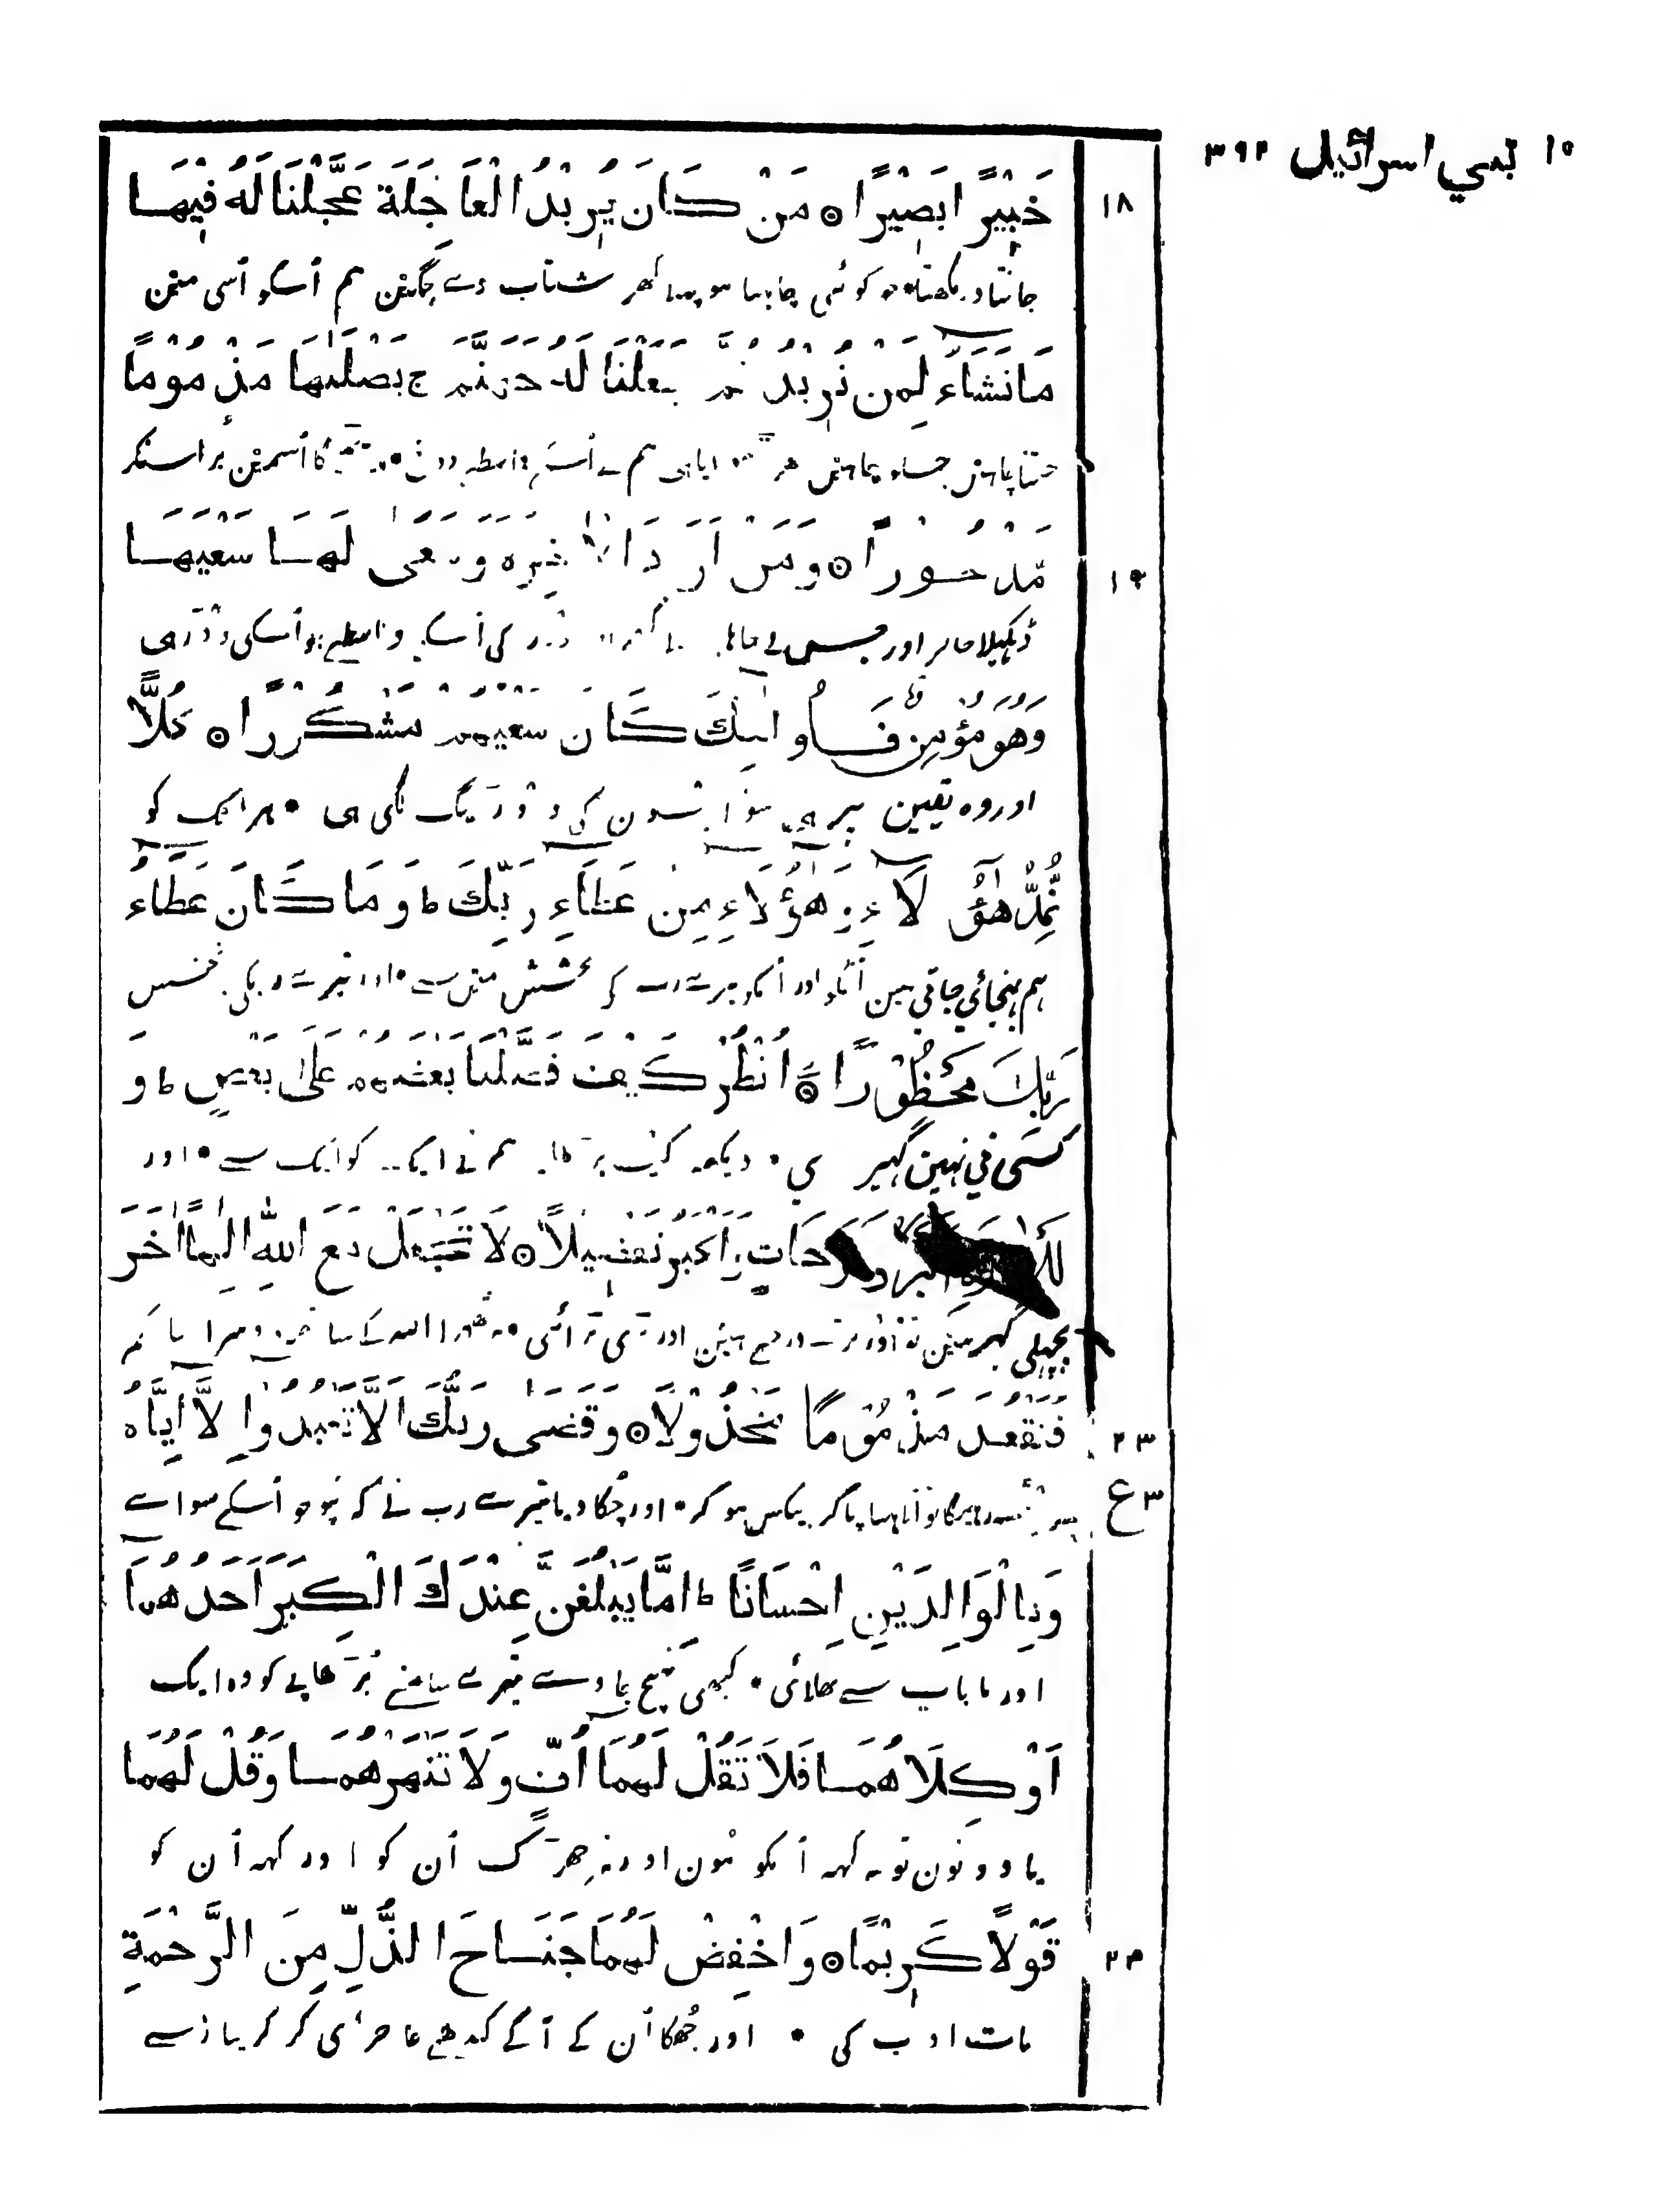 ١٥ بني اسرائيل ٣٩٢
١٨ خَبِيْرًا بَصِيْرًا ۞ مَنْ كَانَ يُرِيْدُ الْعَاجِلَةَ عَجَّلْنَا لَهُ فِيْهَا
جانتا دیکھتا • جو کوئی چاہتا ہو پہلا گھر شتاب دے چکین ہم اُسکو اُسی مین
مَا نَشَاءُ لِمَنْ نُرِيْدُ ثُمَّ جَعَلْنَا لَهُ جَهَنَّمَ ج يَصْلٰىهَا مَذْمُوْمًا
جتنا چاہین جسکو چاہین پھر ہم نے اُسکے واسطے دوزخ اُسمین بُرا سنکر
١٩ مَّدْحُوْرًا ۞ وَمَنْ اَرَادَ الْاٰخِرَةَ وَسَعٰى لَهَا سَعْيَهَا
ڈھکیلا جاکر اور جسنے چاہا کی اُسکے واسطے جو اُسکی دوڑ ہی
وَهُوَ مُؤْمِنٌ فَاُولٰئِكَ كَانَ سَعْيُهُمْ مَّشْكُوْرًا ۞ كُلًّا
اور وہ یقین پر ہی سو ایسون کی دوڑ نیگ لگی ہی • ہر ایک کو
نُّمِدُّ هٰؤُلَاءِ وَهٰؤُلَاءِ مِنْ عَطَاءِ رَبِّكَ ط وَمَا كَانَ عَطَاءُ
ہم پہنچائی جاتی ہین اُنکو اور اُنکو تیرے رب کے بخشش مین سے • اور تیرے رب کی بخشش
رَبِّكَ مَحْظُوْرًا ۞ اُنْظُرْ كَيْفَ فَضَّلْنَا بَعْضَهُمْ عَلٰى بَعْضٍ ط وَ
کسی نی نہین گھیر ی • دیکھ کیسا بڑھایا ہم نے ایک کو ایک سے • اور
اَكْبَرُ دَرَجَاتٍ وَّاَكْبَرُ تَفْضِيْلًا ۞ لَا تَجْعَلْ مَعَ اللّٰهِ اِلٰهًا اٰخَرَ
پچھلی گھر مین تو اور بڑے درجے ہین اور بڑی بڑائی • نہ ٹھہرا اللہ کے ساتھ دوسرا حاکم
٢٣ فَتَقْعُدَ مَذْمُوْمًا مَّخْذُوْلًا ۞ وَقَضٰى رَبُّكَ اَلَّا تَعْبُدُوْا اِلَّا اِيَّاهُ
ع ٣ پھر بیٹھ رہیگا تو اُلاہنا پاکر بیکس ہو کر • اور چکا دیا تیرے رب نے کہ نپوجو اُسکے سوا اے
وَبِالْوَالِدَيْنِ اِحْسَانًا ط اِمَّا يَبْلُغَنَّ عِنْدَكَ الْكِبَرَ اَحَدُهُمَا
اور ما باپ سے بھلائی • کبھی پہنچ جاوے تیرے سامنے بُڑھاپے کو وہ ایک
اَوْ كِلَاهُمَا فَلَا تَقُلْ لَهُمَا اُفٍّ وَلَا تَنْهَرْهُمَا وَقُلْ لَهُمَا
یا دونون تو نہ کہہ اُنکو ہُون اور نہ جھڑک اُن کو اور کہہ اُن کو
٢٤ قَوْلًا كَرِيْمًا ۞ وَاخْفِضْ لَهُمَا جَنَاحَ الذُّلِّ مِنَ الرَّحْمَةِ
بات ادب کی • اور جُھکا اُن کے آگے کندھے عاجزی کر کر پیار سے